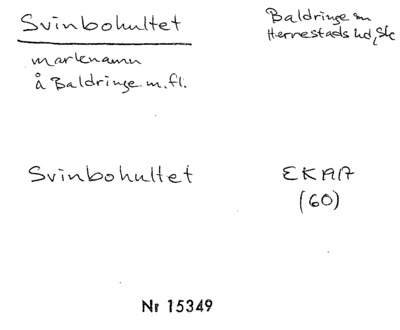 Svinbohultet
Baldringe sn
Herrestads hd, Sk
marknamn
å Baldringe m.fl.
Svinbohultet
EK 1917
(60)
Nr 15349